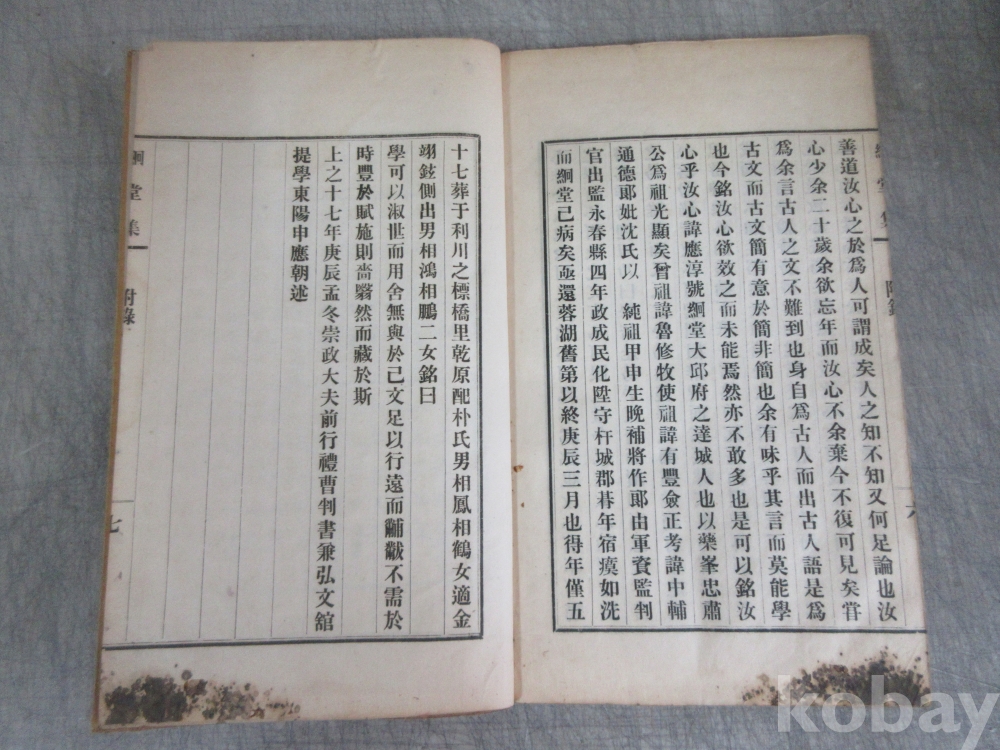 善道汝心之於爲人可謂成矣人之知不知又何足論也汝
心少余二十歲余欲忘年而汝心不余棄今不復可見矣甞
爲余言古人之文不難到也身自爲古人而出古人語是爲
古文而古文簡有意於簡非簡也余有味乎其言而莫能學
也今銘汝心欲效之而未能焉然亦不敢多也是可以銘汝
心乎汝心諱應淳號絅堂大邱府之達城人也以藥峯忠肅
公爲祖光顯矣曾祖諱魯修牧使祖諱有豐僉正考諱中輔
通德郞妣沈氏以 純祖甲申生晩補將作郞由軍資監判
官出監永春縣四年政成民化陞守杆城郡朞年宿瘼如洗
而絅堂已病矣亟還蓉湖舊第以終庚辰三月也得年僅五
六
十七葬于利川之標橋里乾原配朴氏男相鳳相鶴女適金
翊鉉側出男相鴻相鵬二女銘曰
學可以淑世而用舍無與於己文足以行遠而黼黻不需於
時豐於賦施則嗇翳然而藏於斯
上之十七年庚辰孟冬崇政大夫前行禮曹判書兼弘文舘
提學東陽申應朝述
絅堂集
附錄
七
kobay